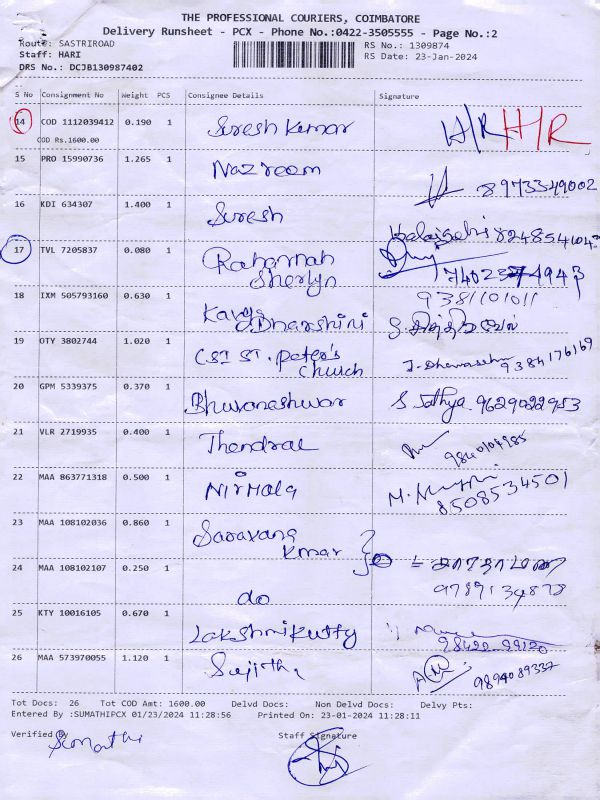 THE PROFESSIONAL COURIERS, COIMBATORE
Delivery Runsheet - PCX - Phone No.:0422-3505555 - Page No.:2
Route: SASTRIROAD
Staff: HARI
DRS No.: DCJB130987402
RS No.: 1309874
RS Date: 23-Jan-2024
S No Consignment No Weight PCS Consignee Details Signature
14 COD 1112039412 0.190 1 Suresh Kumar H/R H/R
COD Rs.1600.00
15 PRO 15990736 1.265 1 Nazreem 8973349002
16 KDI 634307 1.400 1 Suresh
17 TVL 7205837 0.080 1 Rahannah
Sherlyn
18 IXM 505793160 0.630 1 Kavya 9381101011
Dharshini
19 OTY 3802744 1.020 1 CSI ST. Peter's
Church 9384176169
20 GPM 5339375 0.370 1 Bhuvaneshwar S. Sathya. 9629022953
21 VLR 2719935 0.400 1 Thendral
22 MAA 863771318 0.500 1 Nirmala
8508534501
23 MAA 108102036 0.860 1 Saravana
Kmar
24 MAA 108102107 0.250 1 do
25 KTY 10016105 0.670 1 Lakshmikutty
26 MAA 573970055 1.120 1 Sujitha 9894089337
Tot Docs: 26 Tot COD Amt: 1600.00 Delvd Docs: Non Delvd Docs: Delvy Pts:
Entered By :SUMATHIPCX 01/23/2024 11:28:56 Printed On: 23-01-2024 11:28:11
Verified By Staff Signature
Sumathi